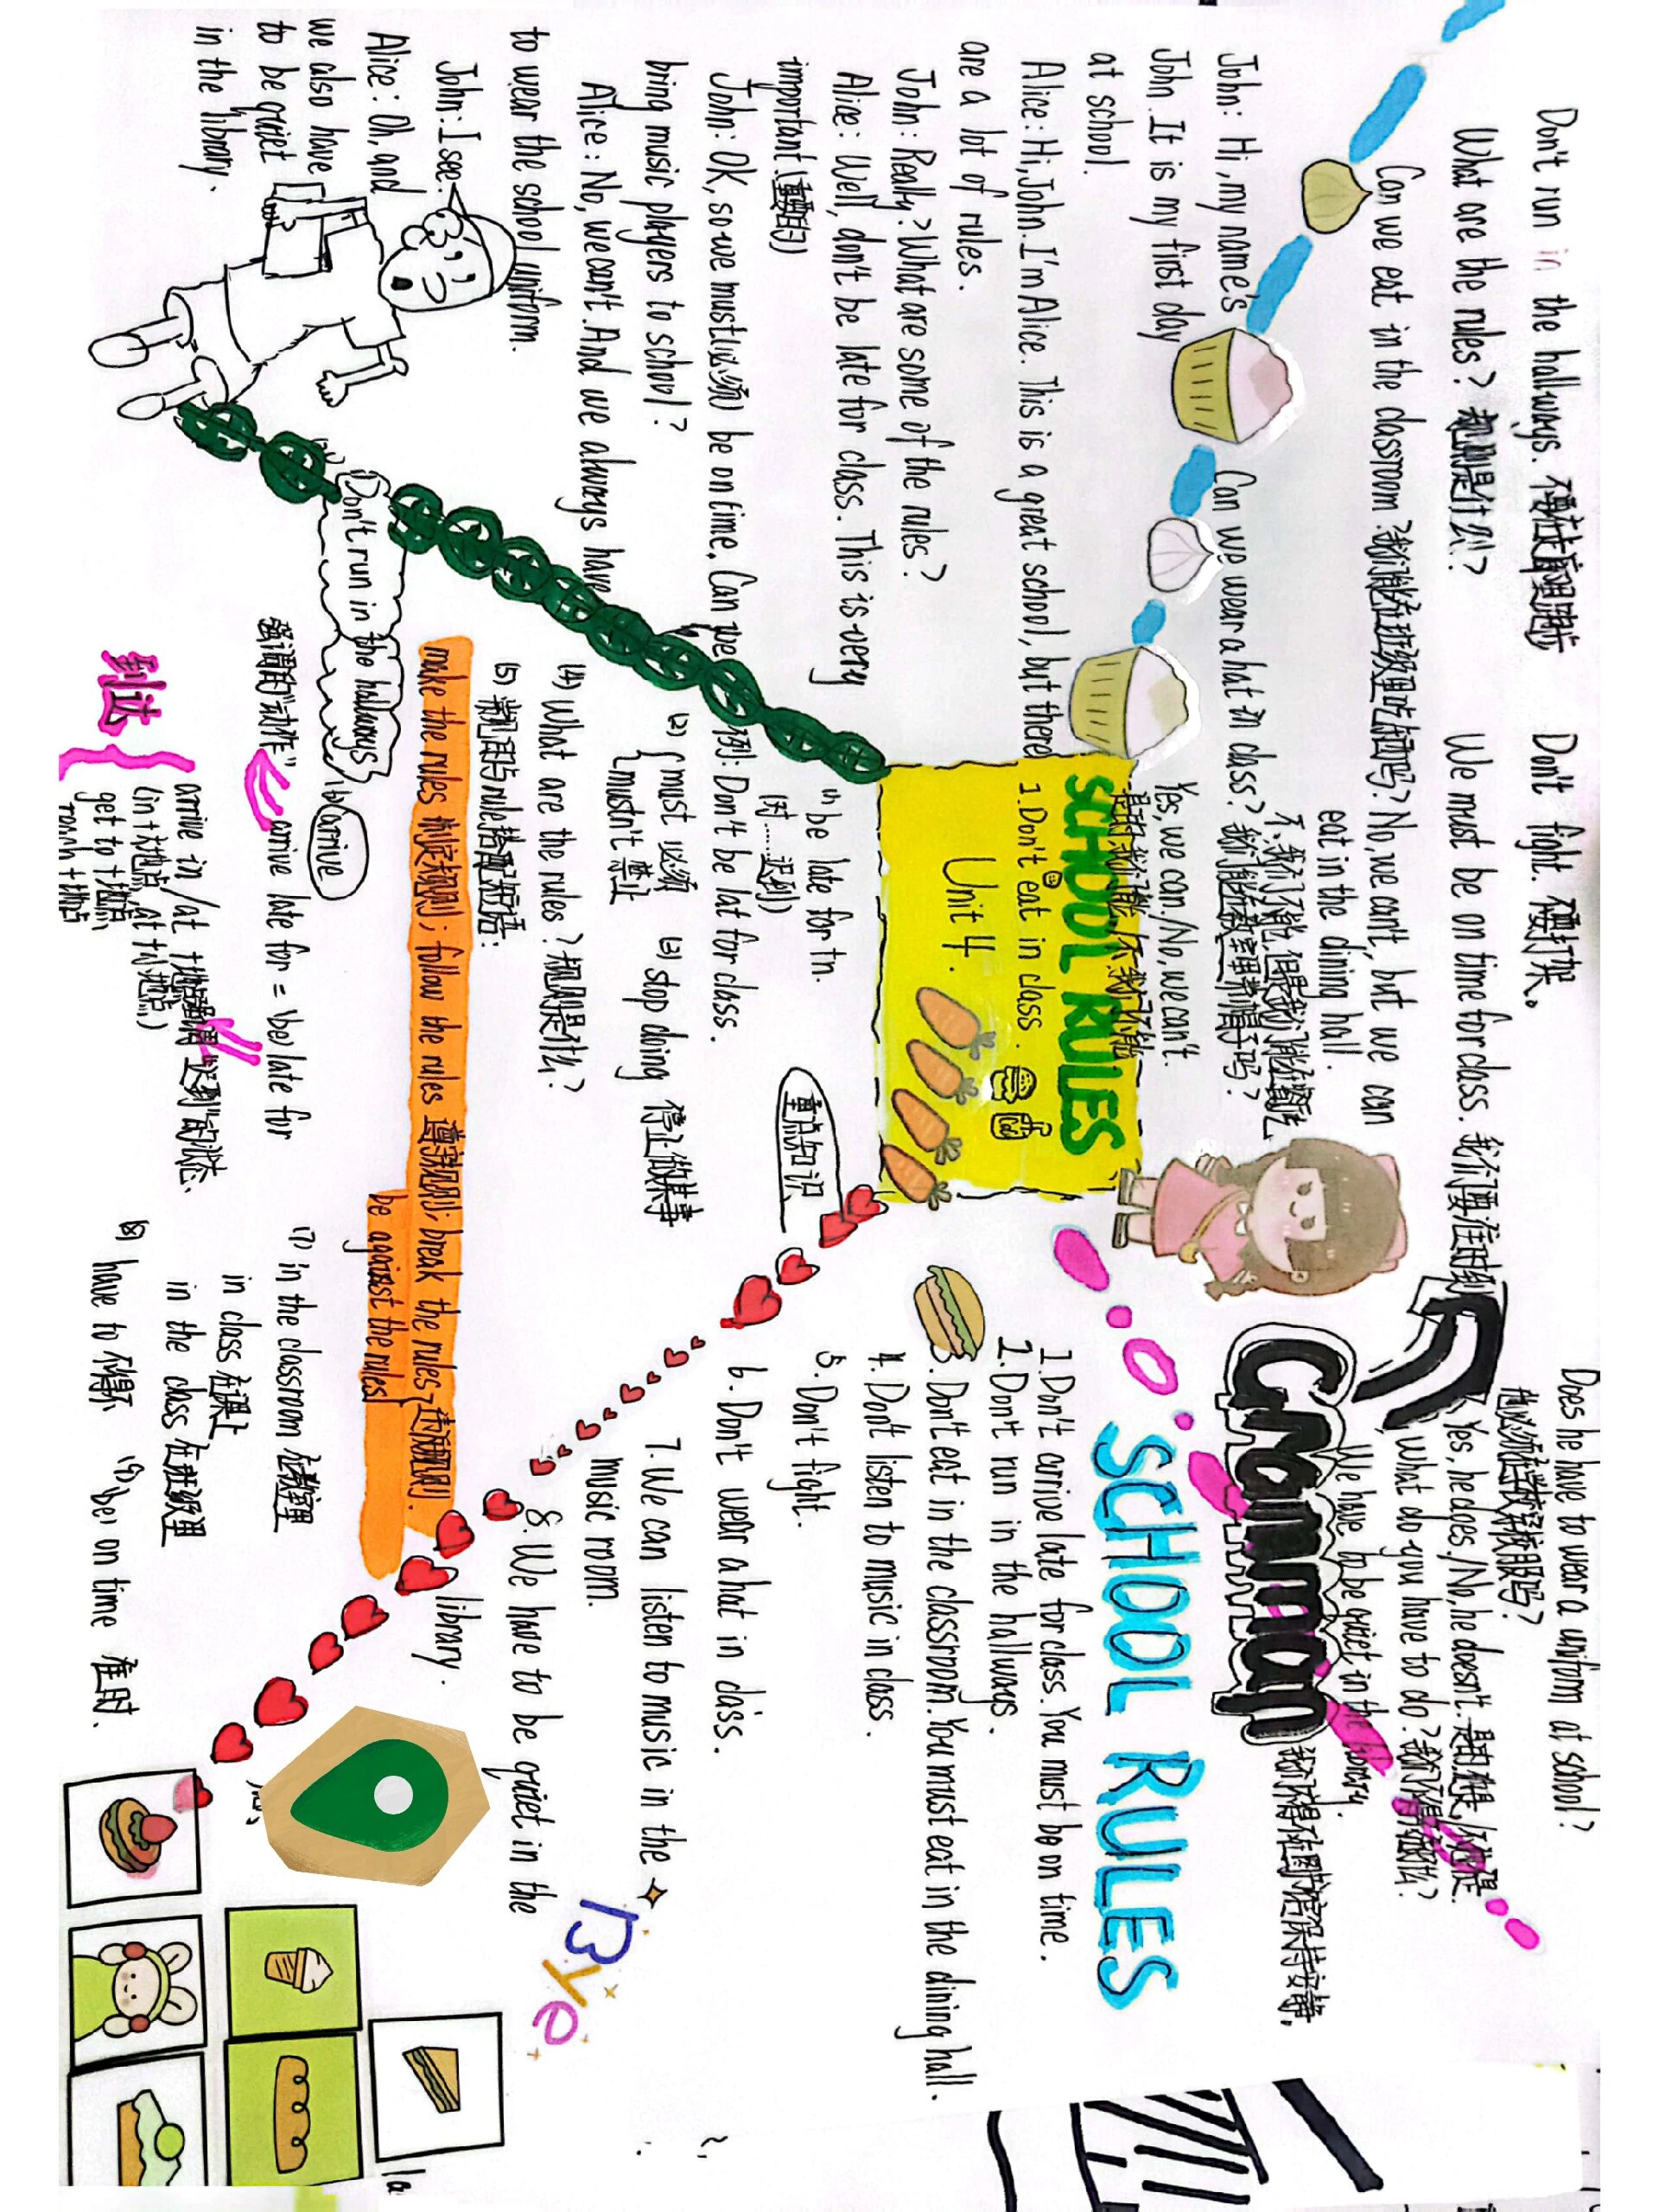 Don't run in the hallways. 不要在走廊里跑步
Don't fight. 不要打架。
What are the rules? 规则是什么?
We must be on time for class. 我们要准时到
Can we eat in the classroom? 我们能在班级里吃东西吗? No, we can't, but we can
eat in the dining hall.
不,我们不能,但是我们能在餐厅吃
Can we wear a hat in class? 我们能在教室里带帽子吗?
Yes, we can./No, we can't.
是的,我们能/不,我们不能
Does he have to wear a uniform at school?
他必须在学校穿校服吗?
Yes, he does./No, he doesn't. 是的,他是./不,他不是.
What do you have to do? 我们不得不做什么?
We have to be quiet in the library.
我们不得不在图书馆保持安静.
Grammar
SCHOOL RULES
Unit 4.
1.Don't eat in class.
John: Hi, my name's
John. It is my first day
at school.
Alice: Hi, John. I'm Alice. This is a great school, but there
are a lot of rules.
John: Really? What are some of the rules?
Alice: Well, don't be late for class. This is very
important.(重要的)
John: OK, so we must(必须) be on time. Can we
bring music players to school?
Alice: No, we can't. And we always have
to wear the school uniform.
John: I see.
Alice: Oh, and
we also have
to be quiet
in the library.
SCHOOL RULES
1.Don't arrive late for class. You must be on time.
2.Don't run in the hallways.
3.Don't eat in the classroom. You must eat in the dining hall.
4. Don't listen to music in class.
5. Don't fight.
6. Don't wear a hat in class.
7. We can listen to music in the
music room.
8. We have to be quiet in the
library.
Bye
重点知识
(1) be late for tn.
(因......迟到)
例: Don't be lat for class.
(2) must 必须
mustn't 禁止
(3) stop doing 停止做某事
(4) What are the rules? 规则是什么?
(5) 常见的与rule搭配短语:
make the rules 制定规则; follow the rules 遵守规则; break the rules 违反规则.
be against the rules
Don't run in the hallways
(6) arrive
强调的"动作" arrive late for = be late for
强调"迟到"的状态.
到达
arrive in/at +地点
(in+大地点 at+小地点)
get to +地点
reach +地点
(7) in the classroom 在教室里
in class 在课上
in the class 在班级里
(8) have to 不得不
(9) be on time 准时.